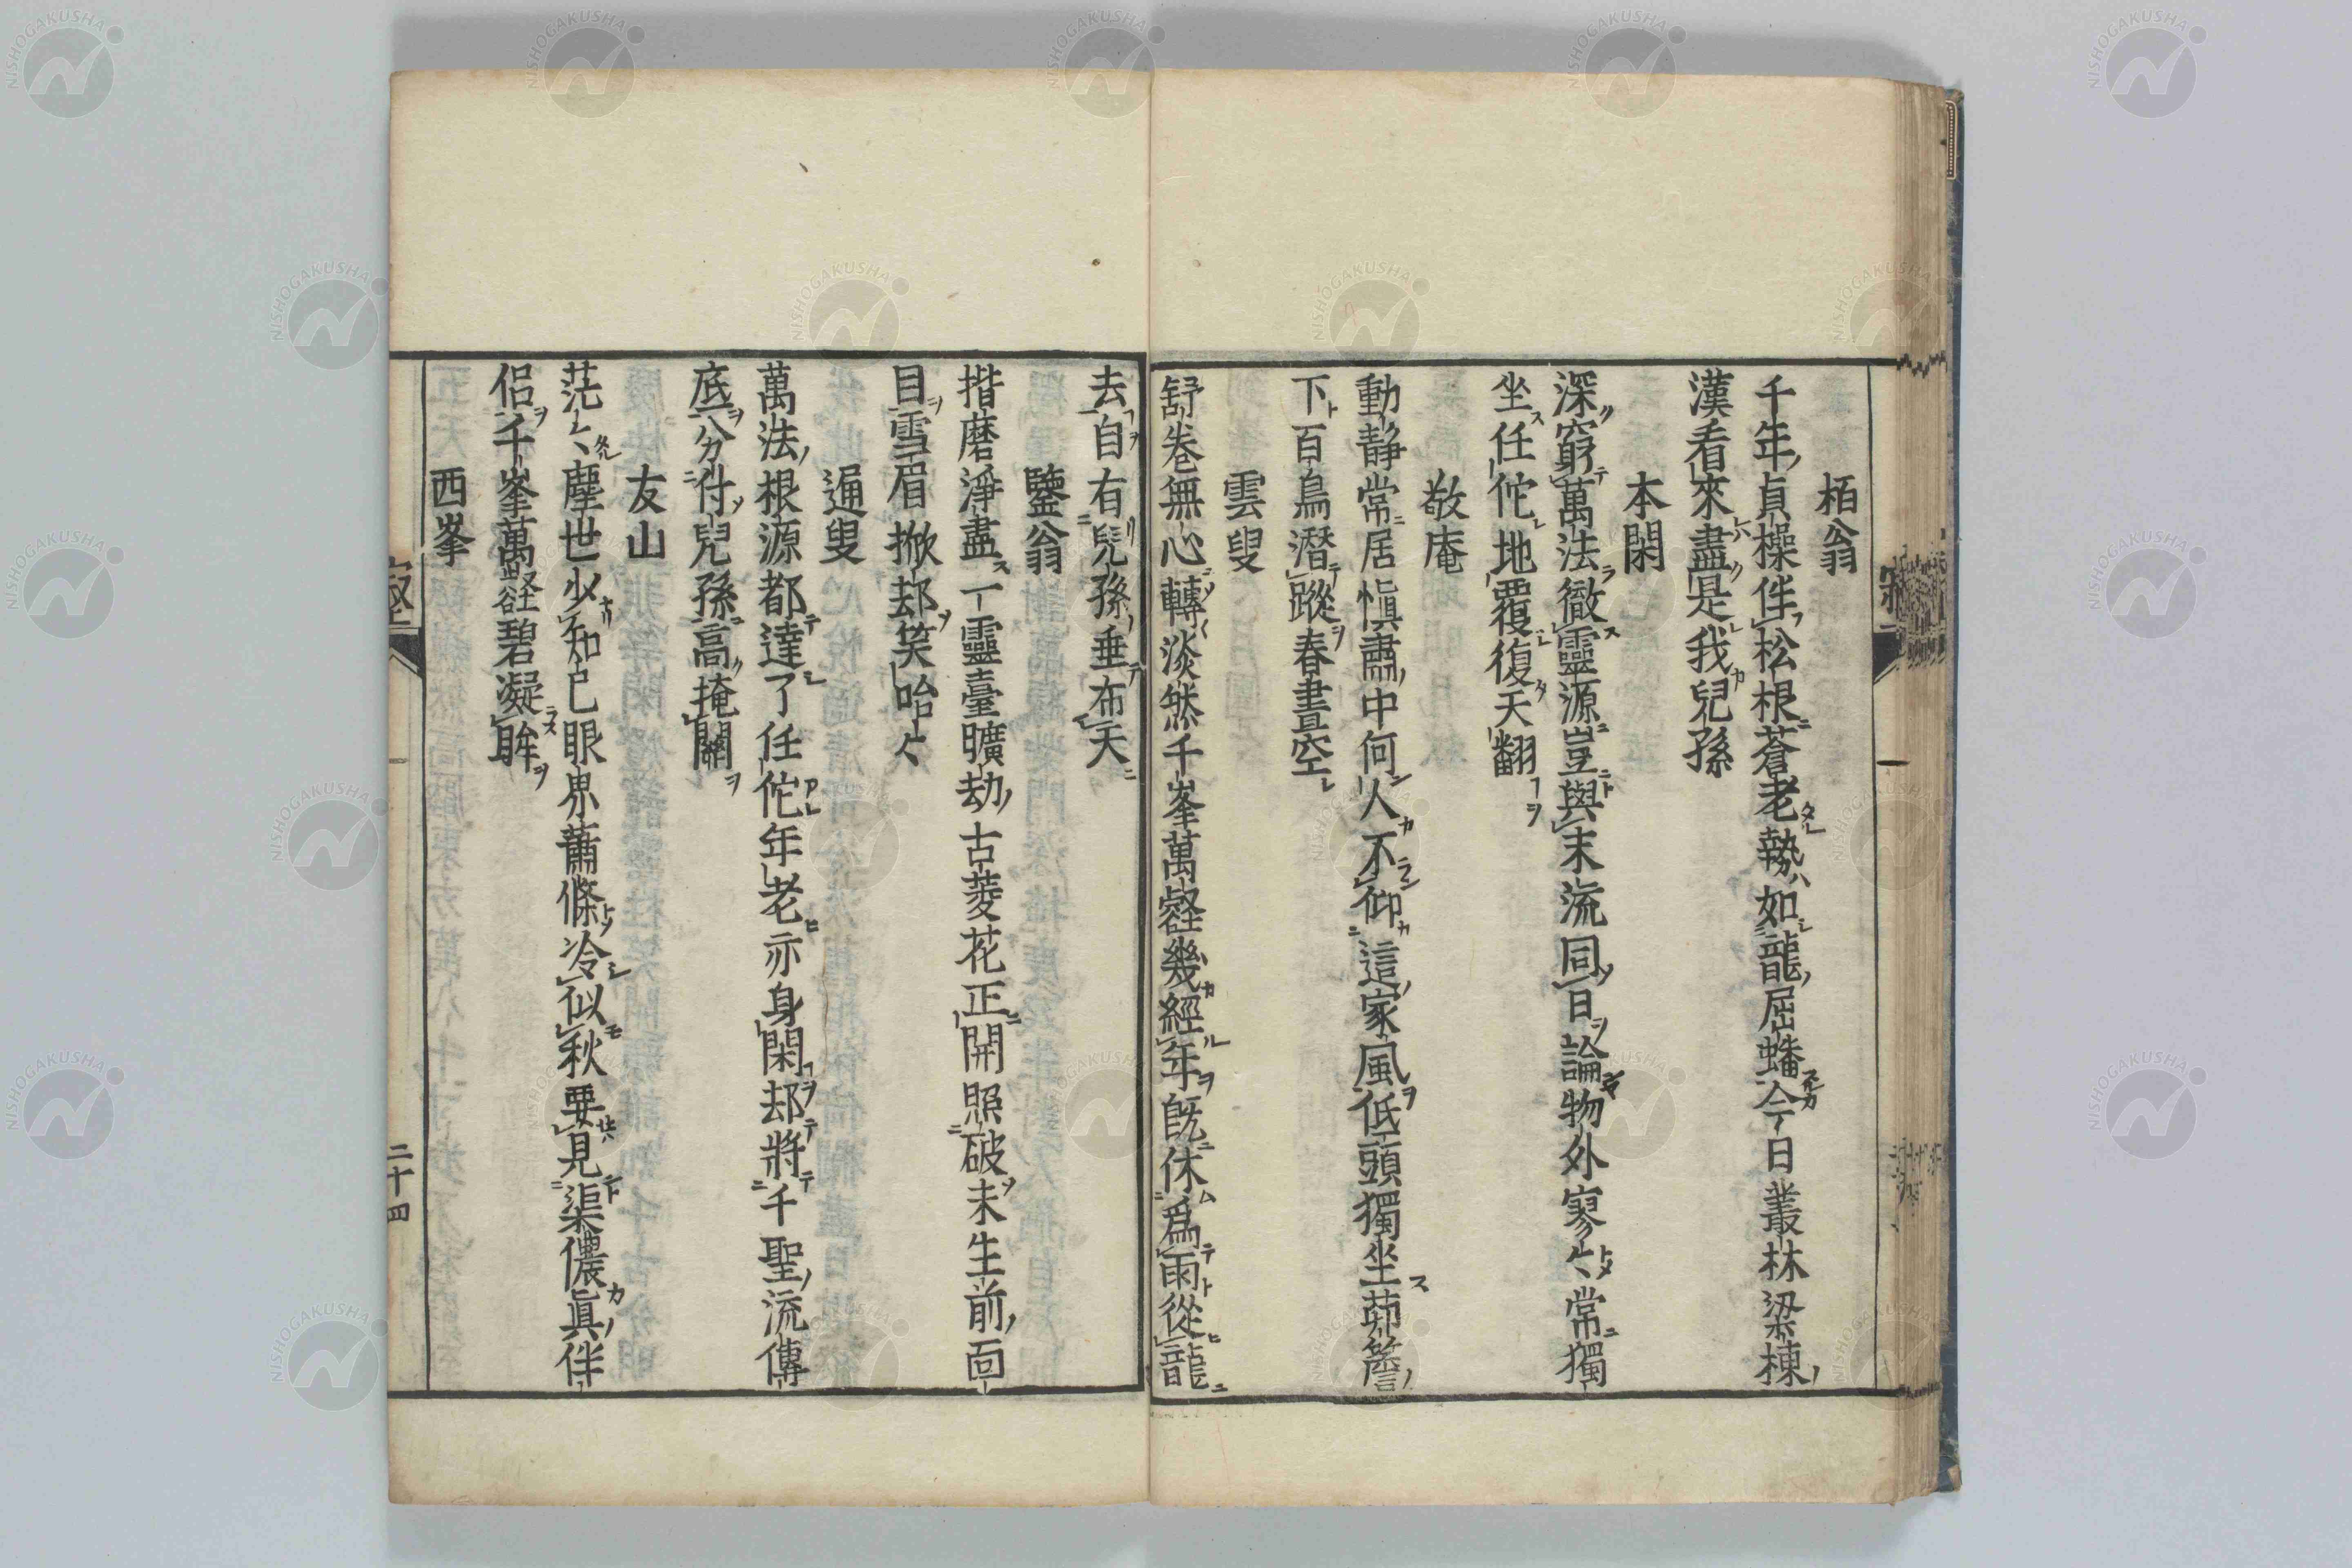 栢翁
千年貞操伴松根蒼老勢如龍屈蟠今日叢林梁棟
漢看來盡是我兒孫
本閑
深窮萬法徹靈源豈與末流同日論物外寥々常獨
坐任佗地覆復天翻
敬庵
動靜常居愼肅中何人不仰這家風低頭獨坐茆簷
下百鳥潛蹤春晝空
雲叟
舒卷無心轉淡然千峯萬壑幾經年旣休爲雨從龍
去自有兒孫垂布天
鑒翁
揩磨淨盡一靈臺曠劫古菱花正開照破未生前面
目雪眉掀却笑咍々
遍叟
萬法根源都達了任佗年老亦身閑却將千聖流傳
底分付兒孫高掩關
友山
茫々塵世少知己眼界蕭條冷似秋要見渠儂眞伴
侶千峯萬壑碧凝眸
西峯
二十四
NISHOGAKUSHA